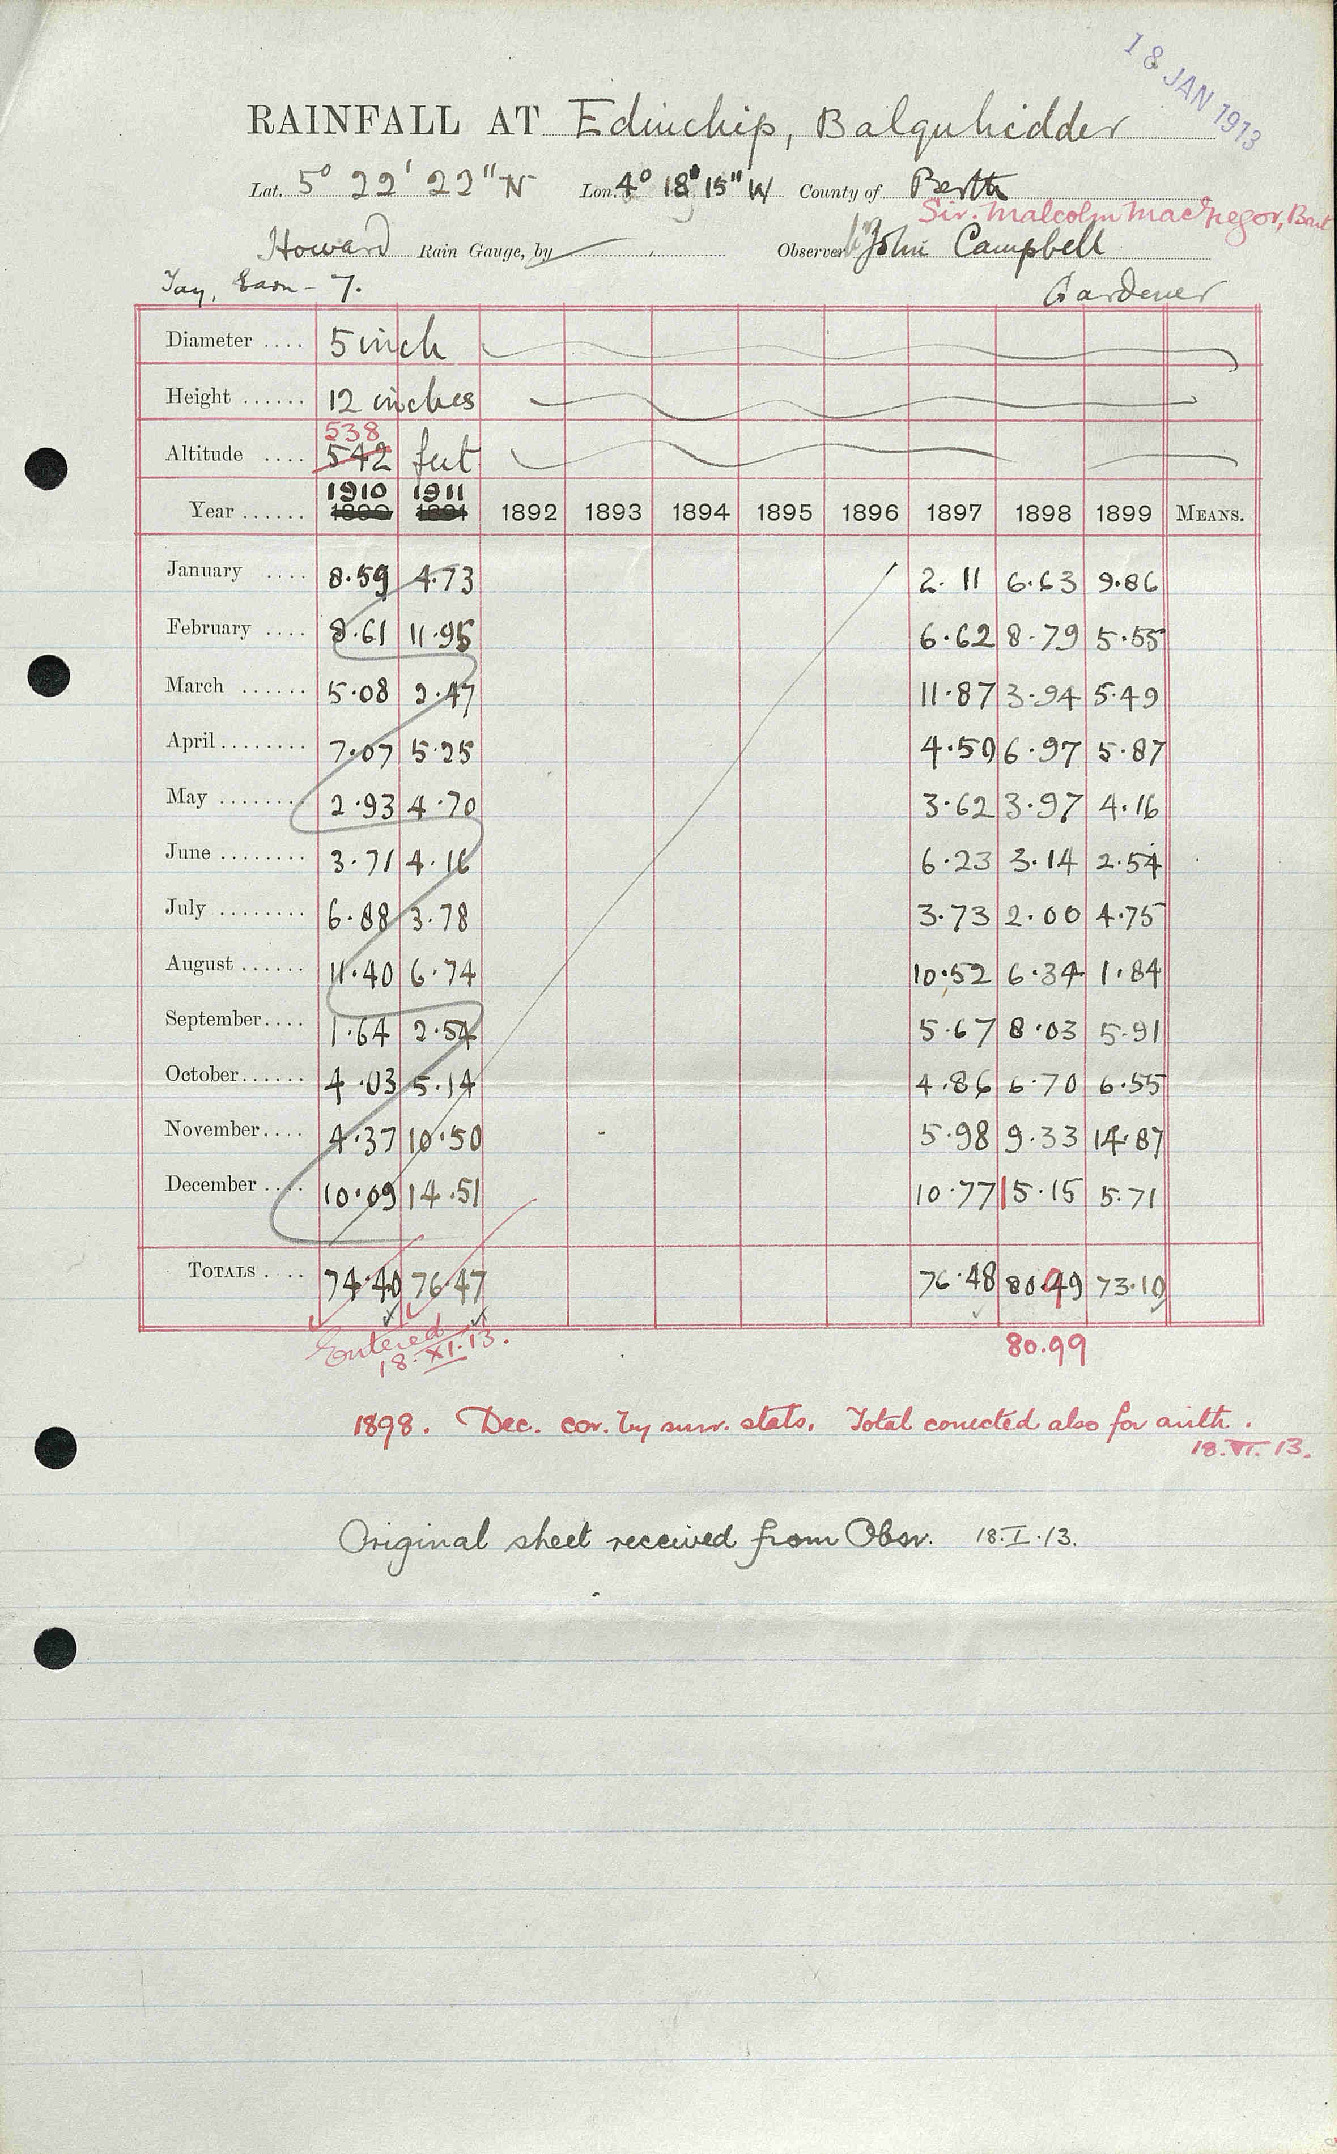 18 JAN 1913
RAINFALL AT Edinchip, Balquhidder
Lat. 5° 22' 22" N Lon. 4° 18' 15" W County of Perth
Sir. Malcolm MacGregor, Bart
Howard Rain Gauge, by Observer John Campbell
Tay, Earn - 7. Gardener
Diameter .... 5 inch
Height ...... 12 inches
538
Altitude .... 542 feet
1910 1911
Year ...... 1890 1891 1892 1893 1894 1895 1896 1897 1898 1899 MEANS.
January .... 8.59 4.73 2.11 6.63 9.86
February .... 8.61 11.95 6.62 8.79 5.55
March ...... 5.08 2.47 11.87 3.94 5.49
April ........ 7.07 5.25 4.50 6.97 5.87
May ........ 2.93 4.70 3.62 3.97 4.16
June ........ 3.71 4.16 6.23 3.14 2.54
July ........ 6.88 3.78 3.73 2.00 4.75
August ...... 11.40 6.74 10.52 6.34 1.84
September .... 1.64 2.54 5.67 8.03 5.91
October ...... 4.03 5.14 4.86 6.70 6.55
November .... 4.37 10.50 5.98 9.33 14.87
December .... 10.09 14.51 10.77 15.15 5.71
TOTALS .... 74.40 76.47 76.48 80.49 73.10
Entered 80.99
18.XI.13.
1898. Dec. cor. by surr. stats. Total corrected also for arith.
18.VI.13.
Original sheet received from Obsr. 18.I.13.